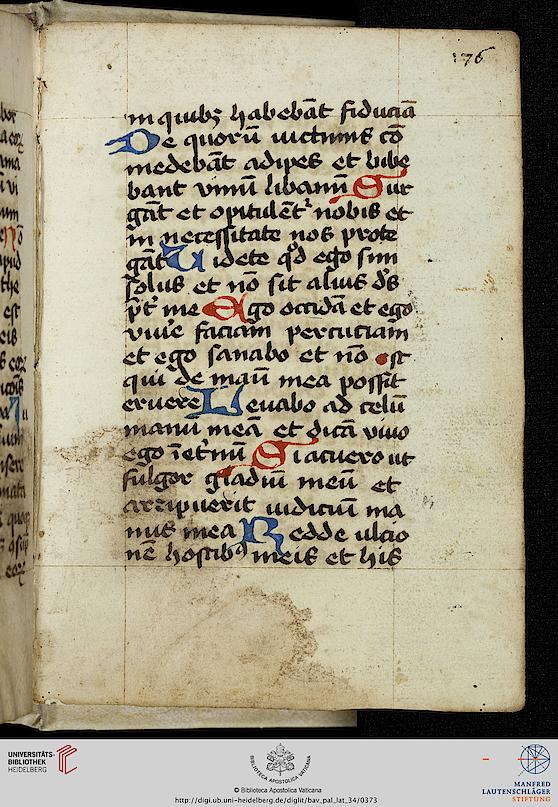 176
in quibꝫ habebāt fiduciā
De quorū uictimis cō
medebāt adipes et bibe
bant vinū libaminū Sur
gāt et opitulēt nobis et
in necessitate nos prote
gāt Uidete qd ego sim
solus et nō sit alius ds
pt me Ego occidā et ego
viue faciam percutiam
et ego sanabo et nō est
qui de manu mea possit
eruere Leuabo ad celū
manū meā et dicā viuo
ego ī etnū Si acuero ut
fulgor gladiū meū et
arripuerit iudiciū ma
nus mea Redde ulcio
nē hostibꝰ meis et his
UNIVERSITÄTS-
BIBLIOTHEK
HEIDELBERG
BIBLIOTECA APOSTOLICA VATICANA
© Biblioteca Apostolica Vaticana
http://digi.ub.uni-heidelberg.de/diglit/bav_pal_lat_34/0373
MANFRED
LAUTENSCHLÄGER
STIFTUNG